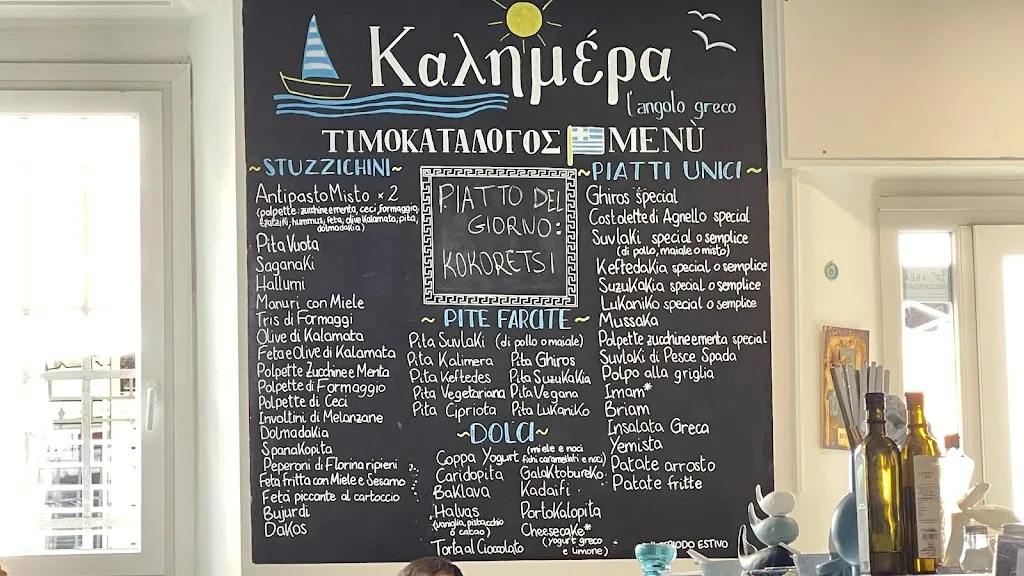 Καλημέρα
l'angolo greco
ΤΙΜΟΚΑΤΑΛΟΓΟΣ MENÙ
~STUZZICHINI~
Antipasto Misto x 2
(polpette: zucchine e menta, ceci, formaggio,
tzatziki, hummus, feta, olive Kalamata, pita,
dolmadakia)
Pita Vuota
Saganaki
Hallumi
Manuri con Miele
Tris di Formaggi
Olive di Kalamata
Feta e Olive di Kalamata
Polpette Zucchine e Menta
Polpette di Formaggio
Polpette di Ceci
Involtini di Melanzane
Dolmadakia
Spanakopita
Peperoni di Florina ripieni
Feta fritta con Miele e Sesamo
Feta piccante al cartoccio
Bujurdi
Dakos
PIATTO DEL
GIORNO:
KOKORETSI
~ PITE FARCITE ~
Pita Suvlaki (di pollo o maiale)
Pita Kalimera Pita Ghiros
Pita Keftedes Pita Suzukakia
Pita Vegetariana Pita Vegana
Pita Cipriota Pita Lukaniko
~DOLCI~
Coppa Yogurt (miele e noci
fichi caramellati e noci)
Caridopita Galaktobureko
Baklava Kadaifi
Halvas Portokalopita
(vaniglia, pistacchio
o cacao)
Cheesecake*
(yogurt greco
e limone)
Torta al Cioccolato
~PIATTI UNICI~
Ghiros special
Costolette di Agnello special
Suvlaki special o semplice
(di pollo, maiale o misto)
Keftedakia special o semplice
Suzukakia special o semplice
Lukaniko special o semplice
Mussaka
Polpette zucchine e menta special
Suvlaki di Pesce Spada
Polpo alla griglia
Imam*
Briam
Insalata Greca
Yemista
Patate arrosto
Patate fritte
ESTIVO